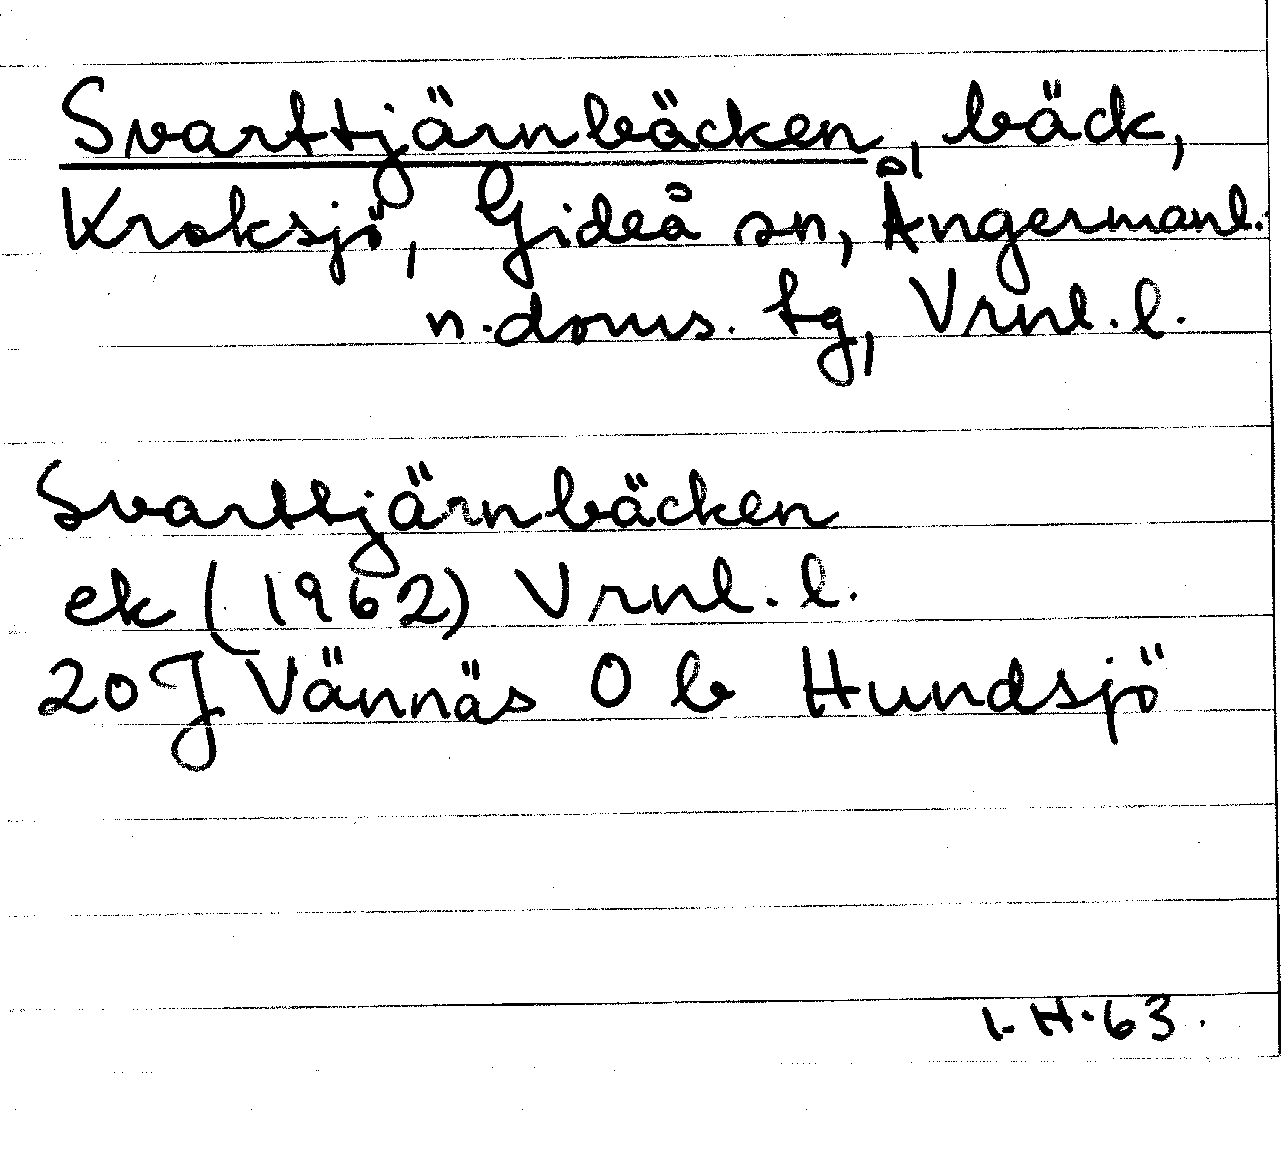 Svarttjärnbäcken, bäck,
Kroksjö, Gideå sn, Ångermanl.
n. doms. tg, Vrnl. l.
Svarttjärnbäcken
ek (1962) Vrnl. l.
20 J Vännäs O b Hundsjö
I. H. 63.